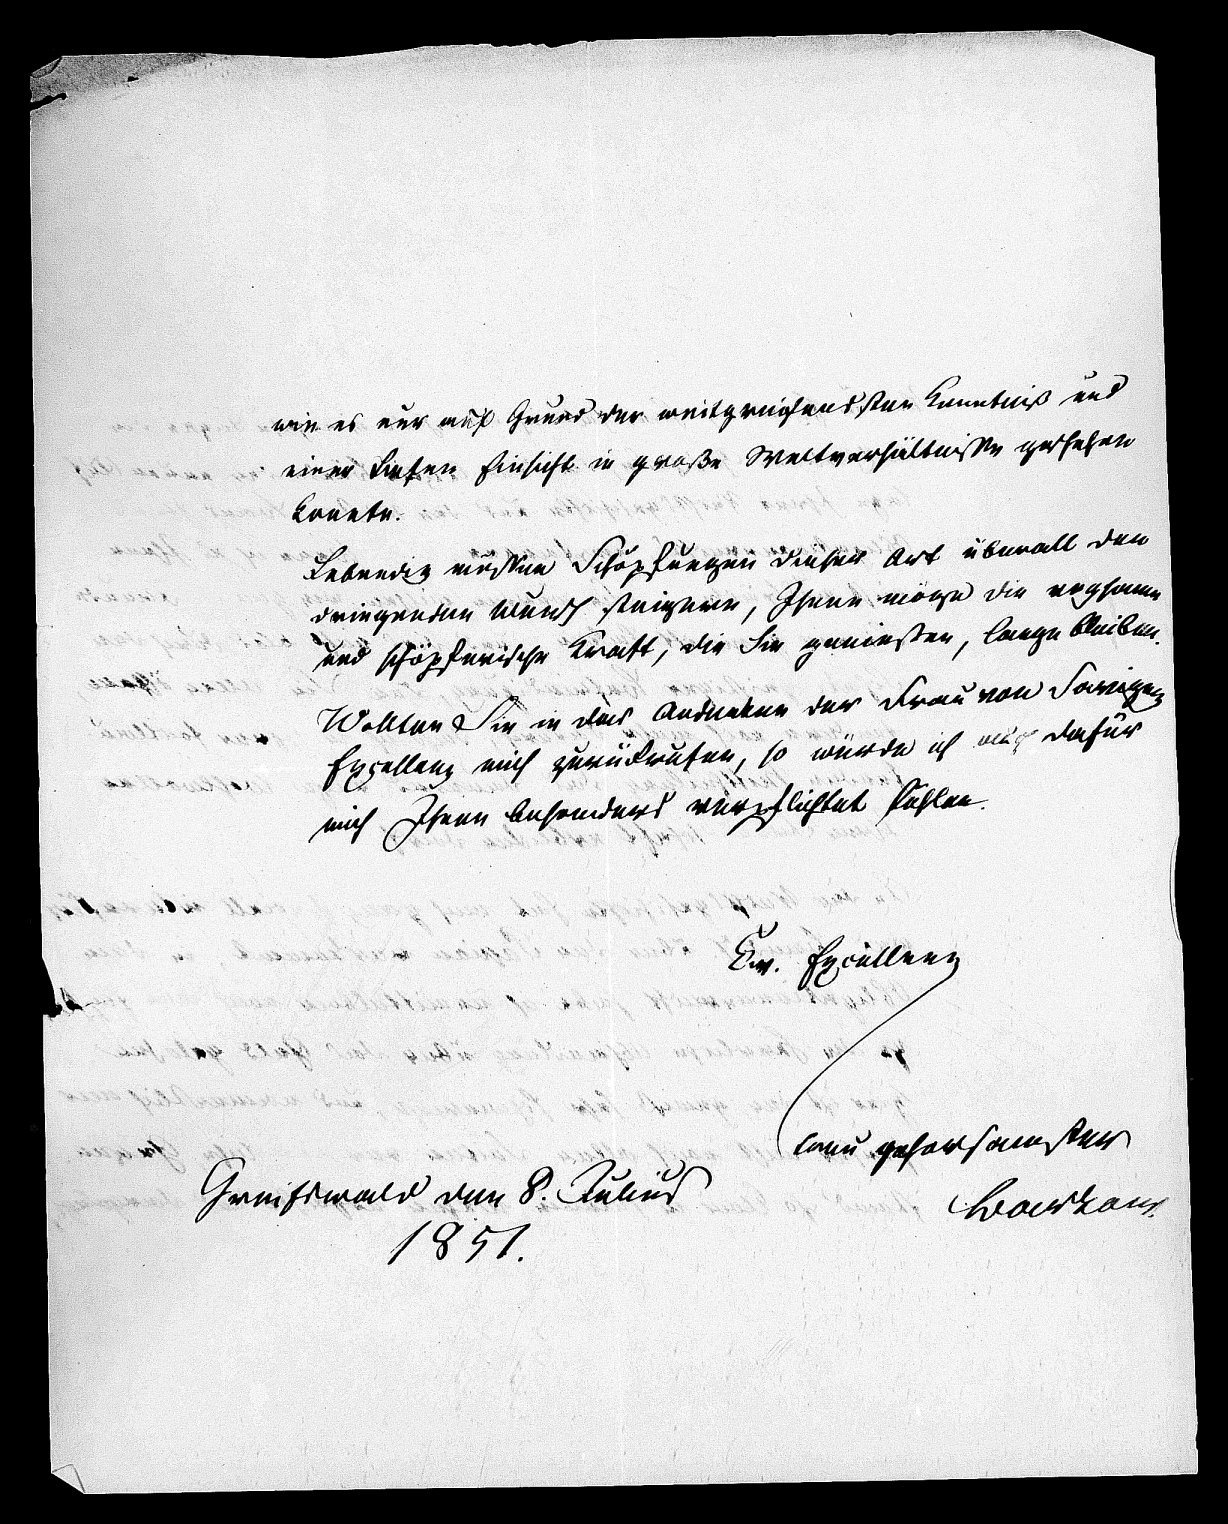 wie es nur auf Grund der weitgreifendsten Kenntniß und
einer tiefen Einsicht in große Weltverhältnisse geschehen
konnte.
Lebendig müssen Schöpfungen dieser Art überall den
dringenden Wunsch steigern, Ihnen möge die regsame
und schöpferische Kraft, die Sie genießen, lange bleiben.
Wollten Sie in das Andenken der Frau von Savigny
Excellenz mich zurückrufen, so würde ich auch dafür
mich Ihnen besonders verpflichtet fühlen.
Ew. Excellenz
ganz gehorsamster
Barkow.
Greifswald den 8. Julius
1851.